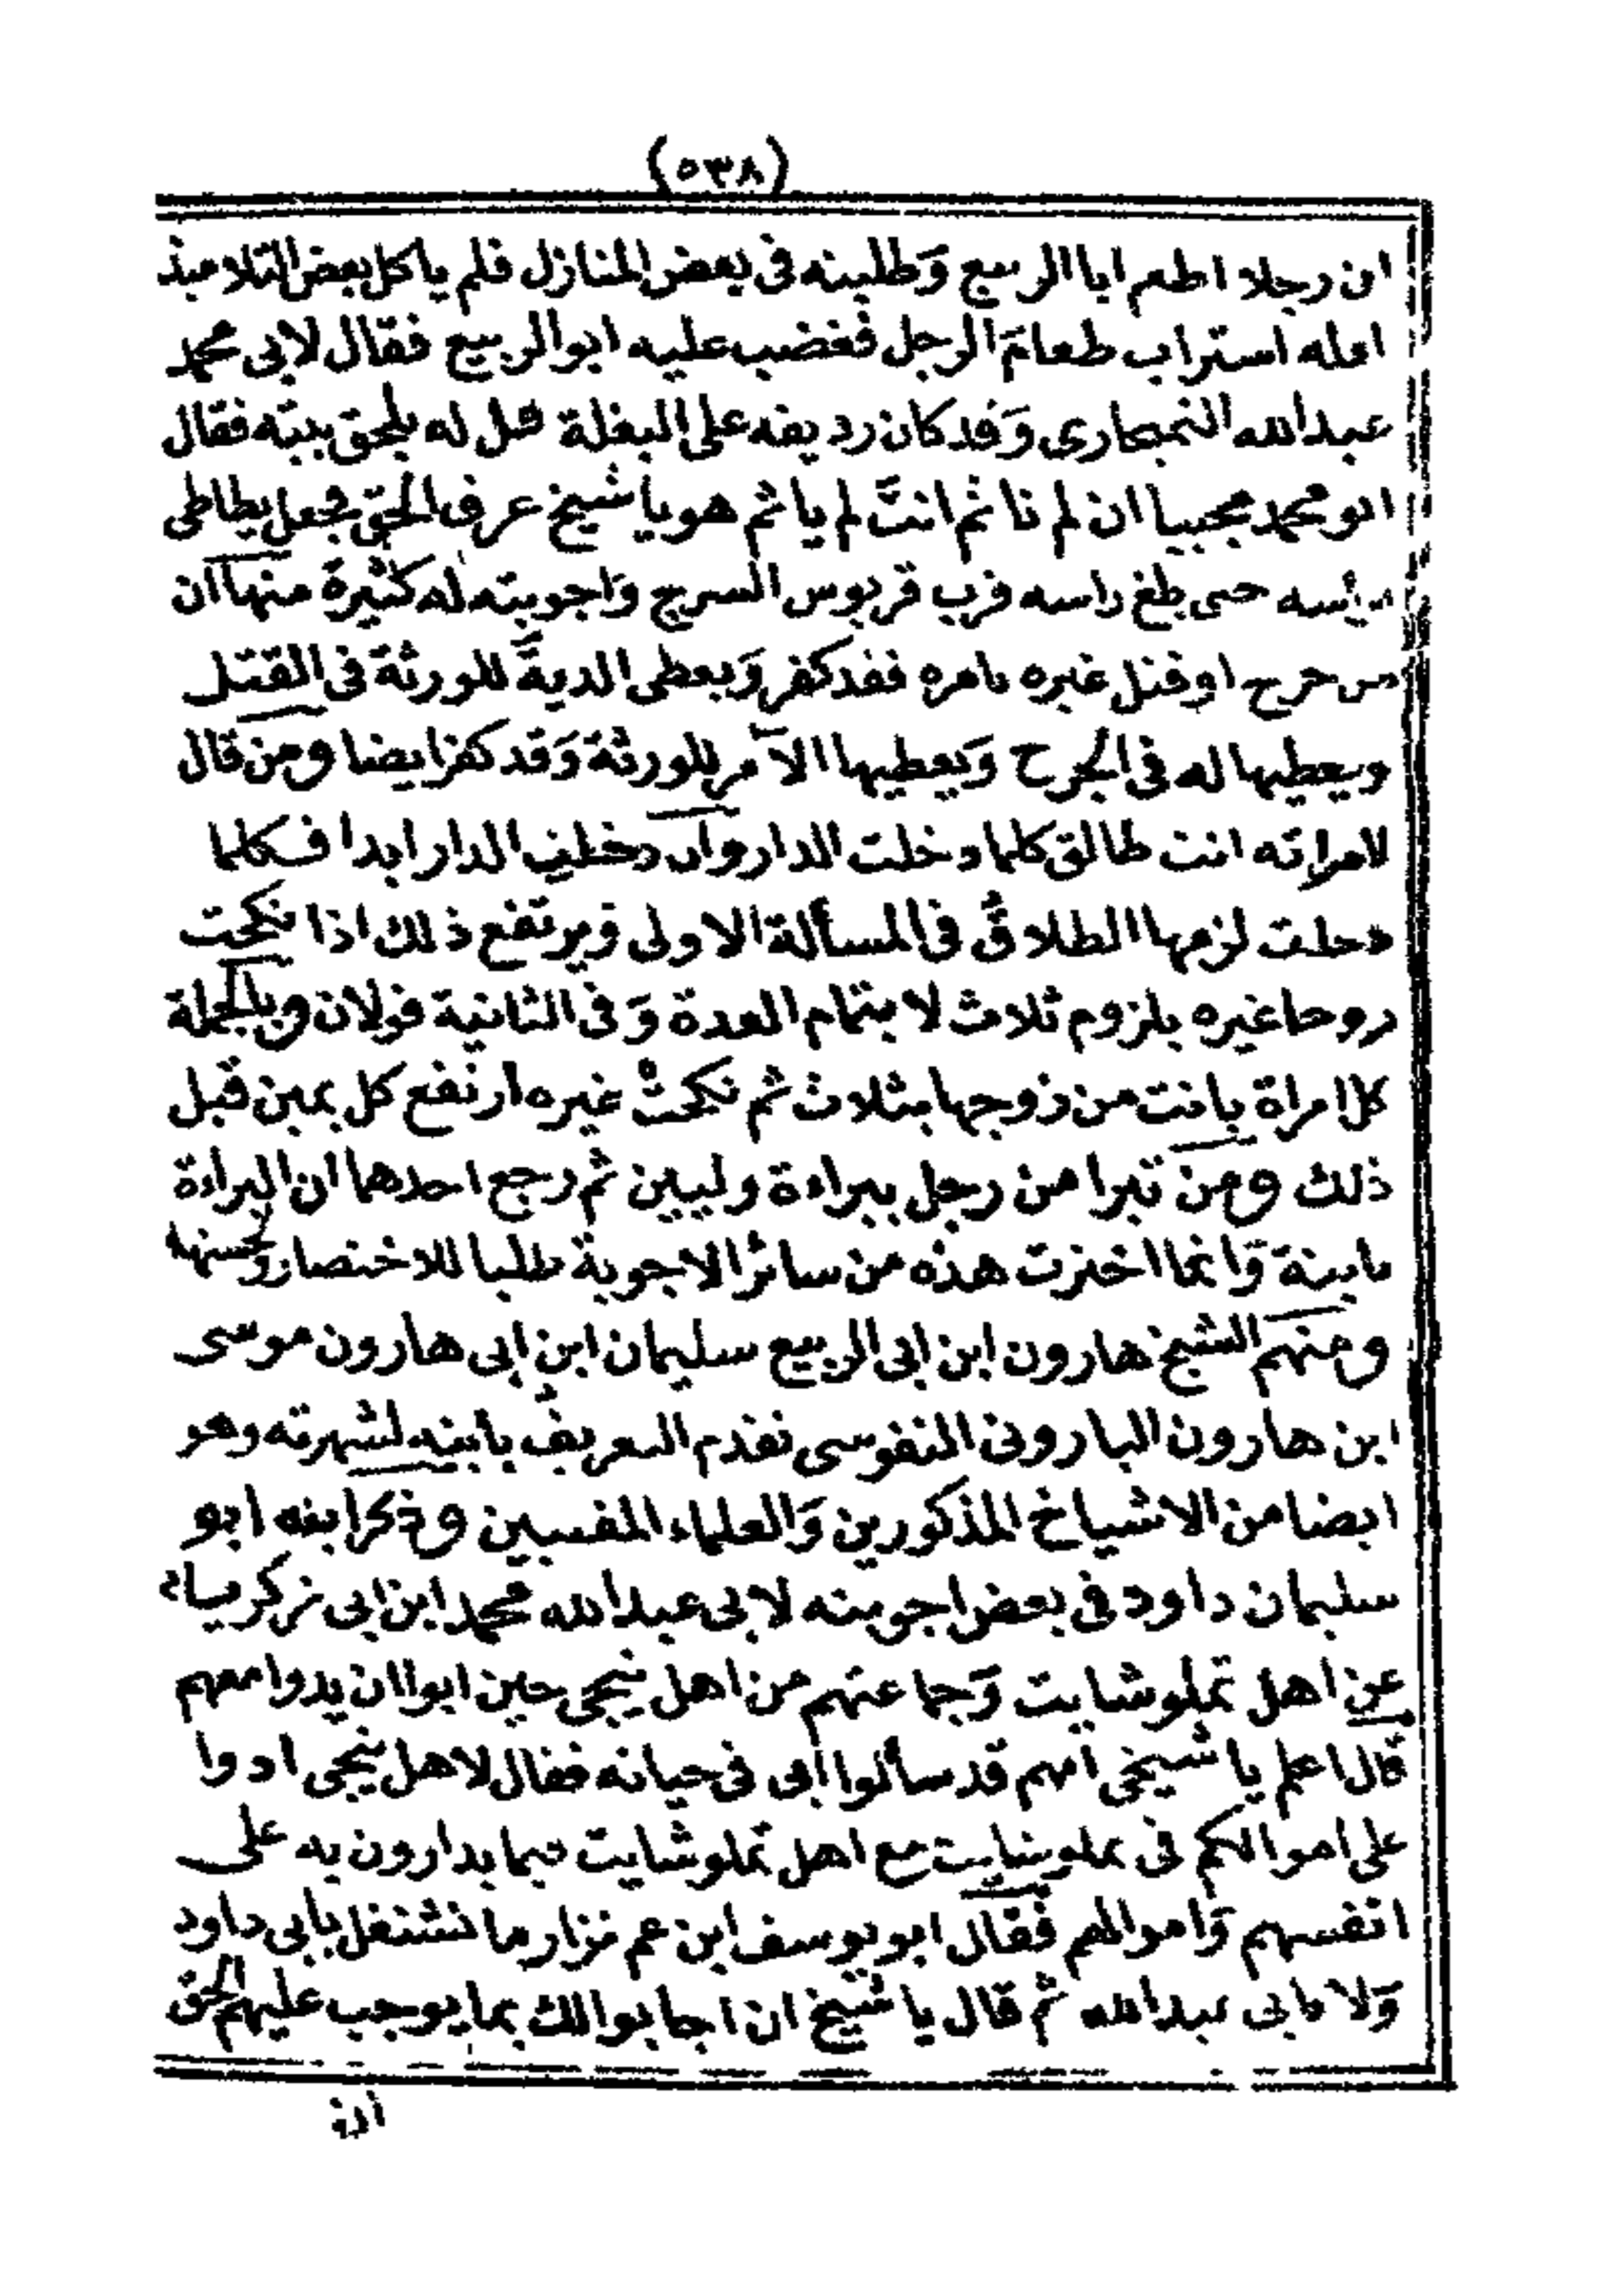 (٥٣٨)
ان رجلا اطعم ابا الربيع وَطلبته فى بعض المنازل فلم ياكل بعض التلاميذ
لعله استراب طعامَ الرجل فغضب عليه ابو الربيع فقال لابى محمد
عبدالله وَقد كان رديفه على البغلة قل له يلحق بيته فقال
ابو محمد مجيبا ان لم تاثم انتَ لم ياثم هو يا شيخ عرف الحق فجعل يطاطى
براسه حتى بلغ راسه قرب قربوس السرج وَاجوبته له كثيرة منها ان
من جرح او قتل غيره بامره فقد كفر وَيعطى الديةَ للورثة فى القتل
ويعطيها له فى الجرح وَيعطيها الآمر للورثة وَقد كفر ايضا ومن قال
لامراته انت طالق كلما دخلت الدار وان دخلتِ الدار ابدا فكلما
دخلت لزمها الطلاقُ فى المسألة الاولى ويرتفع ذلك اذا نكحت
زوجا غيره بلزوم ثلاث لا بتمام العدة وَفى الثانية قولان وبالجملة
كل امراة بانت من زوجها بثلاث ثم نكحتْ غيره ارتفع كل يمين قبل
ذلك ومن تبرا من رجل ببراءة وليين ثم رجع احدهما ان البراءة
ثابتة وَانما اخترت هذه من سائر الاجوبة طلبا للاختصار ولحسنها
ومنهم الشيخ هارون ابن ابى الربيع سليمان ابن ابى هارون موسى
ابن هارون البارونى النفوسى تقدم التعريف بأبيه لشهرته وهو
ايضا من الاشياخ المذكورين وَالعلماء المفتيين وذكر ابنه ابو
سليمان داود فى بعض اجوبته لابى عبدالله محمد ابن ابى زكرياء
عن اهل تملوشايت وَجماعتهم من اهل ينجى حين ابوا ان يدوا معهم
قال اعلم يا شيخى انهم قد سألوا ابى فى حياته فقال لاهل ينجى ادوا
على اموالكم فى تملوشايت مع اهل تملوشايت فيما يدارون به على
انفسهم وَاموالهم فقال ابو يوسف ابن عم نزار ما نشتغل بابى داود
وَلا بابى عبدالله ثم قال يا شيخ ان اجابوا لك بما يوجب عليهم الحق